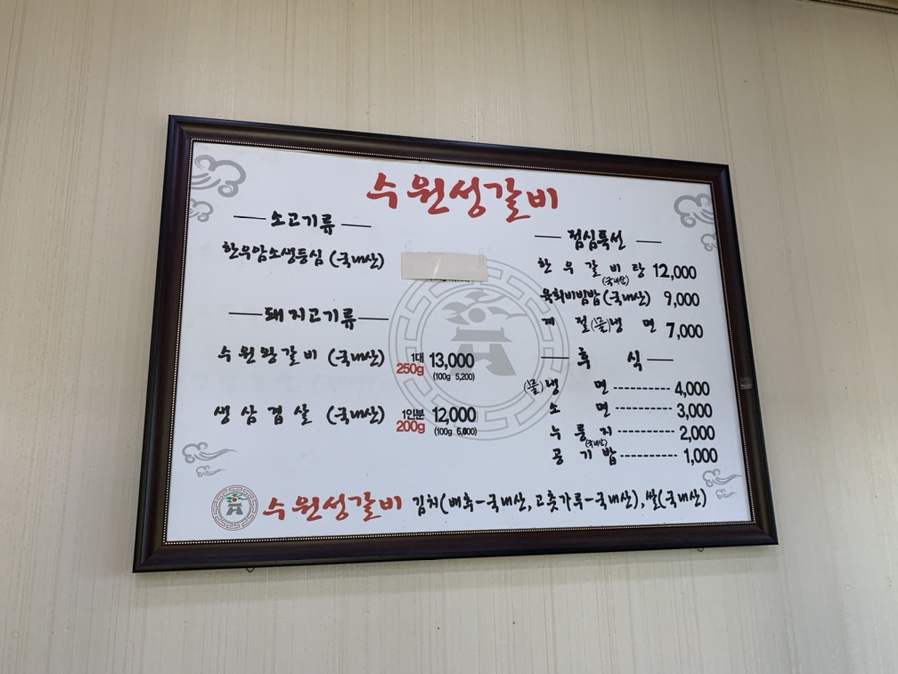 수원성갈비
소고기류
한우암소생등심 (국내산)
돼지고기류
수원왕갈비 (국내산) 1대 250g 13,000
(100g 5,200)
생삼겹살 (국내산) 1인분 200g 12,000
(100g 6,000)
점심특선
한우갈비탕 12,000
(국내산)
육회비빔밥 (국내산) 9,000
계절(물)냉면 7,000
후식
(물)냉면 ---------- 4,000
소면 ---------- 3,000
누룽지 ---------- 2,000
(국내산)
공기밥 ---------- 1,000
수원성갈비 김치(배추-국내산, 고춧가루-국내산), 쌀(국내산)